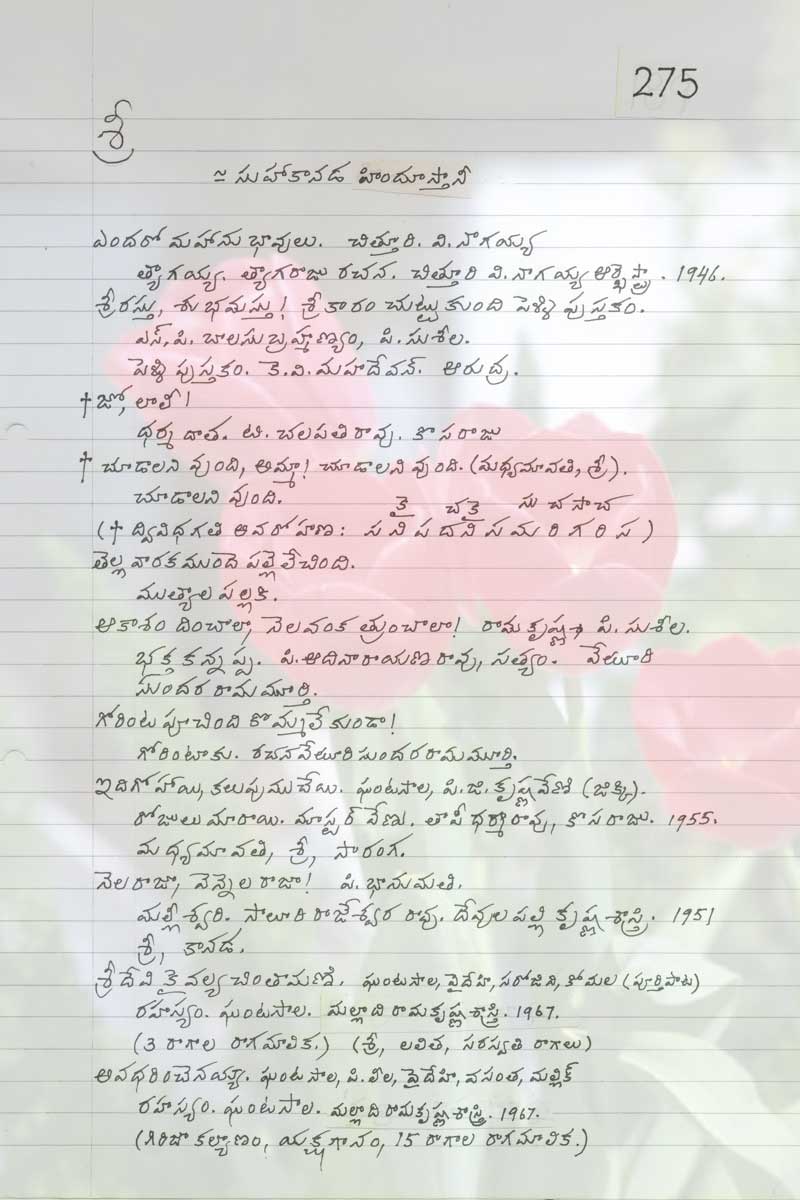 275
శ్రీ
≃ సుహాకానడ హిందూస్తానీ
ఎందరో మహానుభావులు. చిత్తూరి. వి. నాగయ్య
త్యాగయ్య. త్యాగరాజు రచన. చిత్తూరి వి. నాగయ్య ఆర్కెస్ట్రా. 1946.
శ్రీరస్తు, శుభమస్తు! శ్రీకారం చుట్టుకుంది పెళ్ళి పుస్తకం.
ఎస్.పి. బాలసుబ్రహ్మణ్యం, పి. సుశీల.
పెళ్ళి పుస్తకం. కె.వి. మహాదేవన్. ఆరుద్ర.
† జో, లాలి!
ధర్మదాత. టి. చలపతిరావు. కొసరాజు
† చూడాలని వుంది, అమ్మా! చూడాలని వుంది. (మధ్యమావతి, శ్రీ).
చూడాలని వుంది.
కై చకై సు చ సా చ
(† ద్వివిధగతి అవరోహణ: స ని ప ద ని స మ రి గ రి స)
తెల్లవారకముందె పల్లె లేచింది.
ముత్యాల పల్లకి.
ఆకాశం దించాలా, నెలవంక త్రుంచాలా! రామకృష్ణ, పి. సుశీల.
భక్త కన్నప్ప. పి. ఆదినారాయణరావు, సత్యం. వేటూరి
సుందరరామమూర్తి.
గోరింట పూచింది కొమ్మాలేకుండా!
గోరింటాకు. రచన వేటూరి సుందరరామమూర్తి.
ఇదిగో హాయి, కలుపుము చేయి. ఘంటసాల, పి.జి. కృష్ణవేణి (జిక్కి).
రోజులు మారాయి. మాస్టర్ వేణు. తాపీ ధర్మారావు, కొసరాజు. 1955.
మధ్యమావతి, శ్రీ, సారంగ.
నెలరాజా, వెన్నెల రాజా! పి. భానుమతి.
మల్లీశ్వరి. సాలూరి రాజేశ్వరరావు. దేవులపల్లి కృష్ణశాస్త్రి. 1951
శ్రీ, కానడ.
శ్రీదేవి కైవల్య చింతామణి. ఘంటసాల, వైదేహి, సరోజిని, కోమల (పూర్తిపాట)
రహస్యం. ఘంటసాల. మల్లాది రామకృష్ణశాస్త్రి. 1967.
(3 రాగాల రాగమాలిక.) (శ్రీ, లలిత, సరస్వతి రాగాలు)
అవధరించెనయ్యా. ఘంటసాల, పి. లీల, వైదేహి, వసంత, మల్లిక్
రహస్యం. ఘంటసాల. మల్లాది రామకృష్ణశాస్త్రి. 1967.
(గిరిజా కల్యాణం, యక్షగానం, 15 రాగాల రాగమాలిక.)